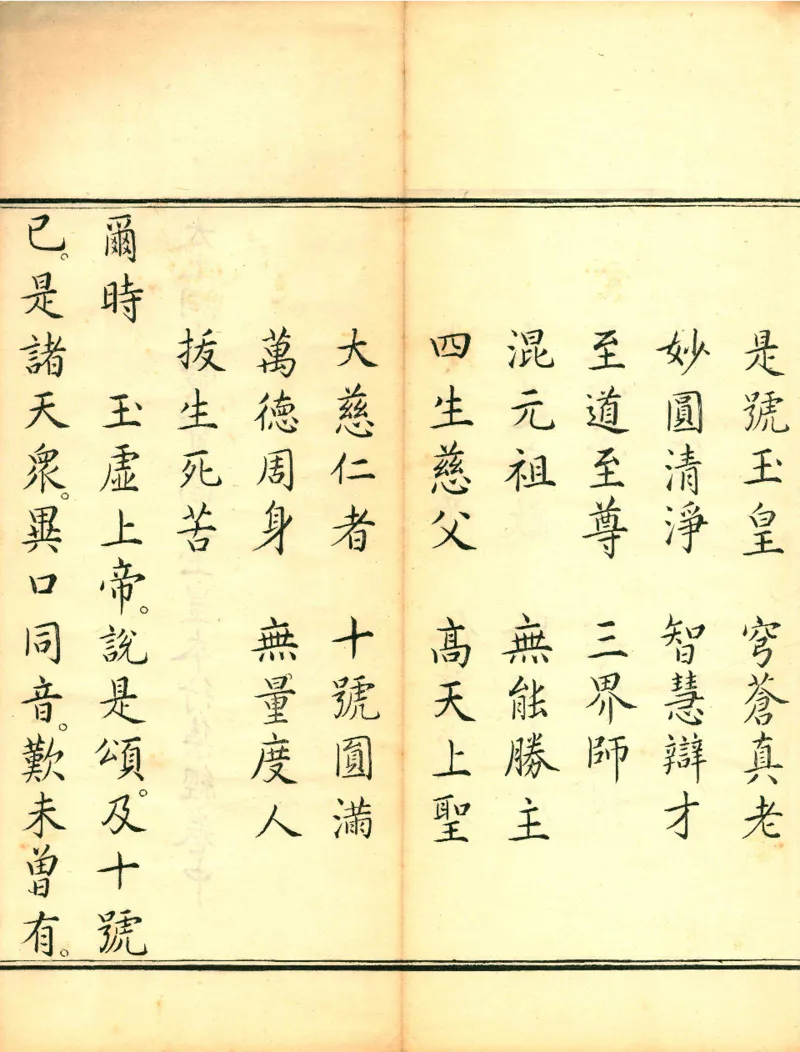 是號玉皇 穹蒼真老
妙圓清淨 智慧辯才
至道至尊 三界師
混元祖 無能勝主
四生慈父 高天上聖
大慈仁者 十號圓滿
萬德周身 無量度人
拔生死苦
爾時 玉虛上帝。說是頌。及十號
已。是諸天衆。異口同音。歎未曾有。